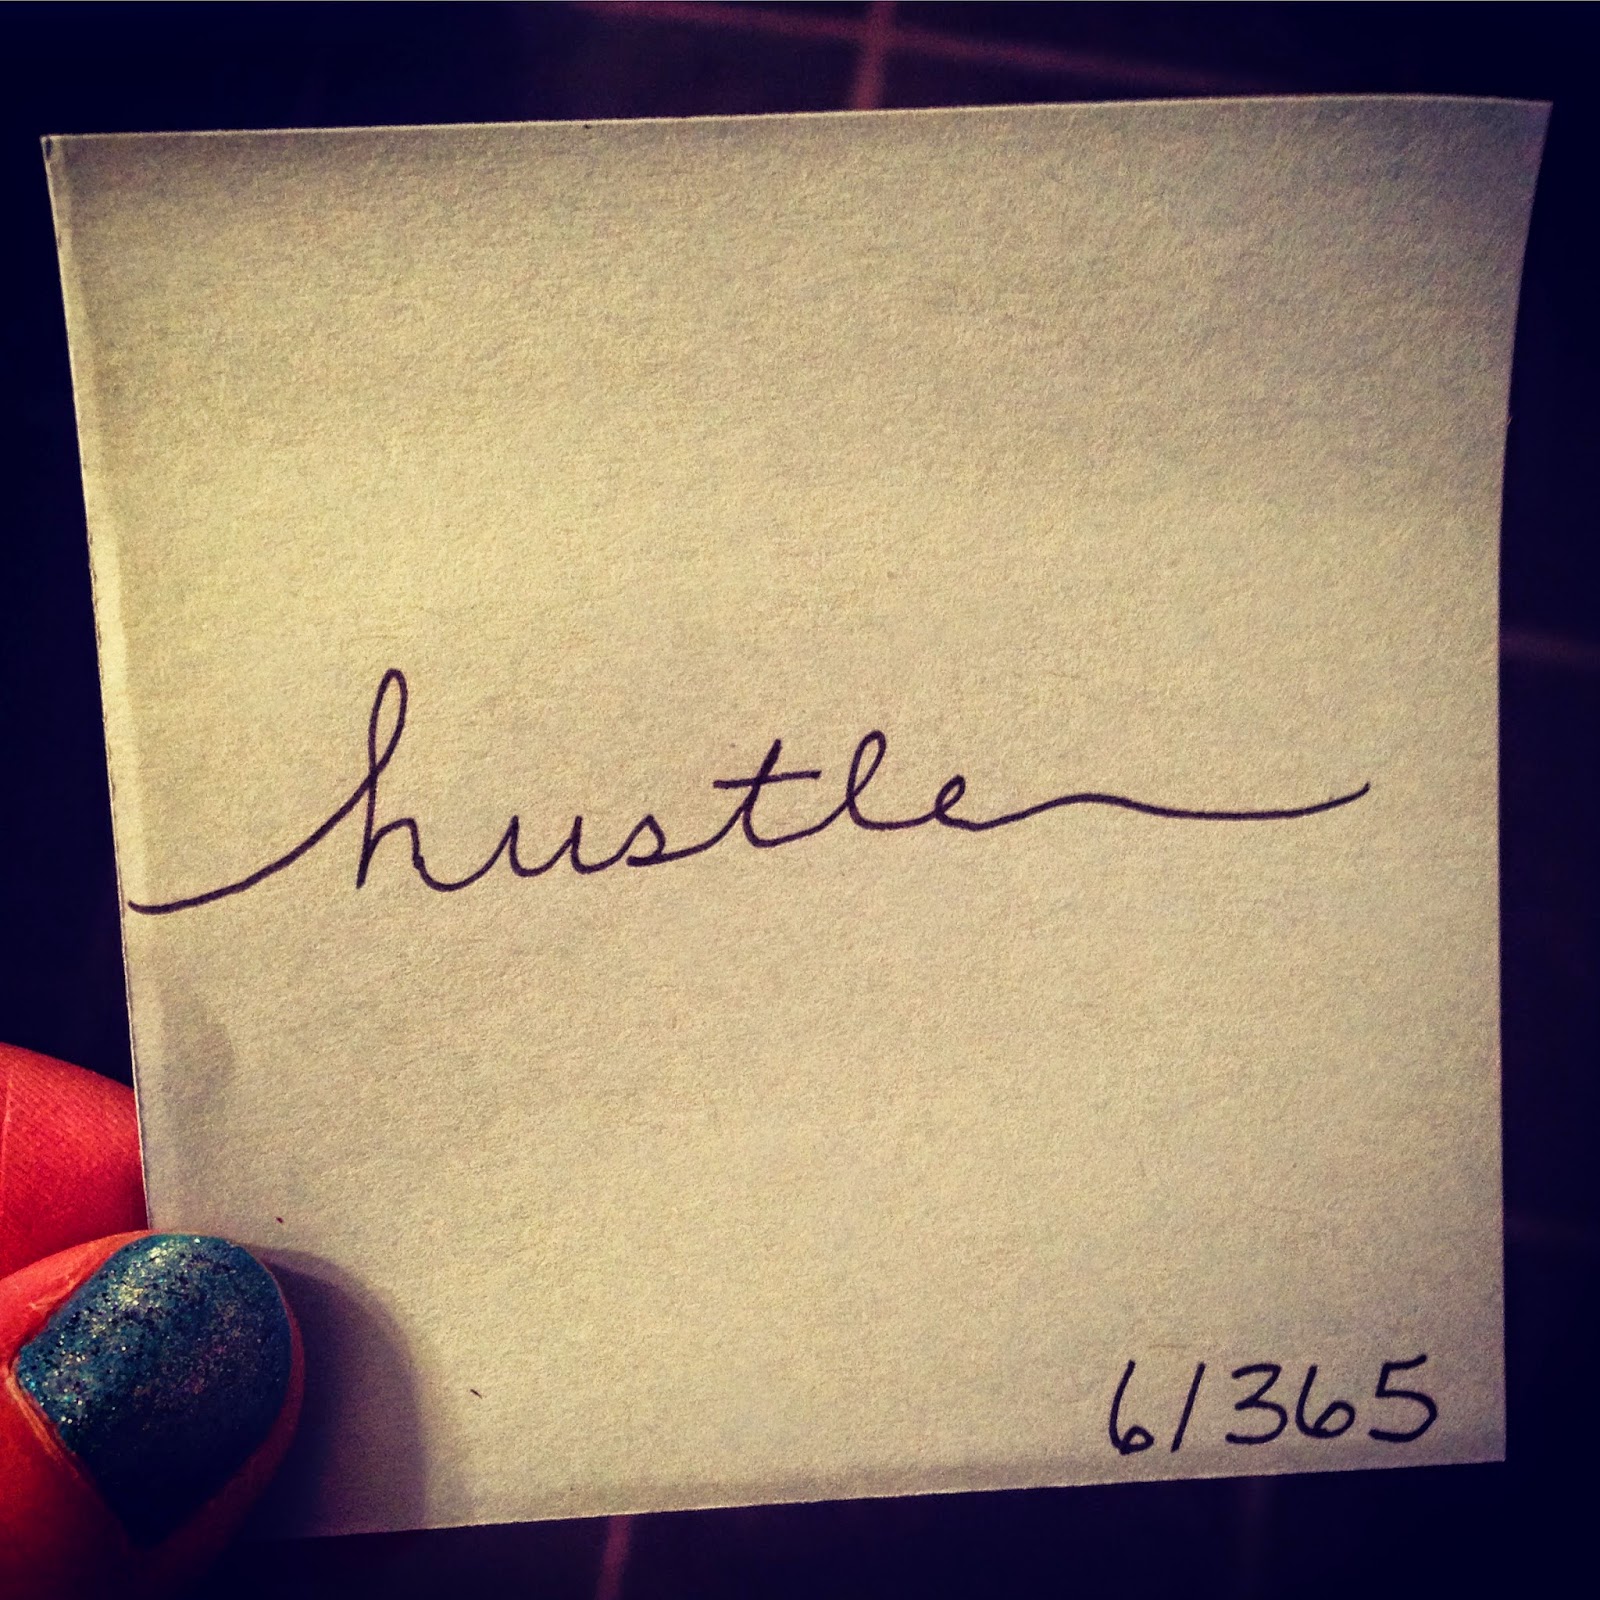 hustle
6/365